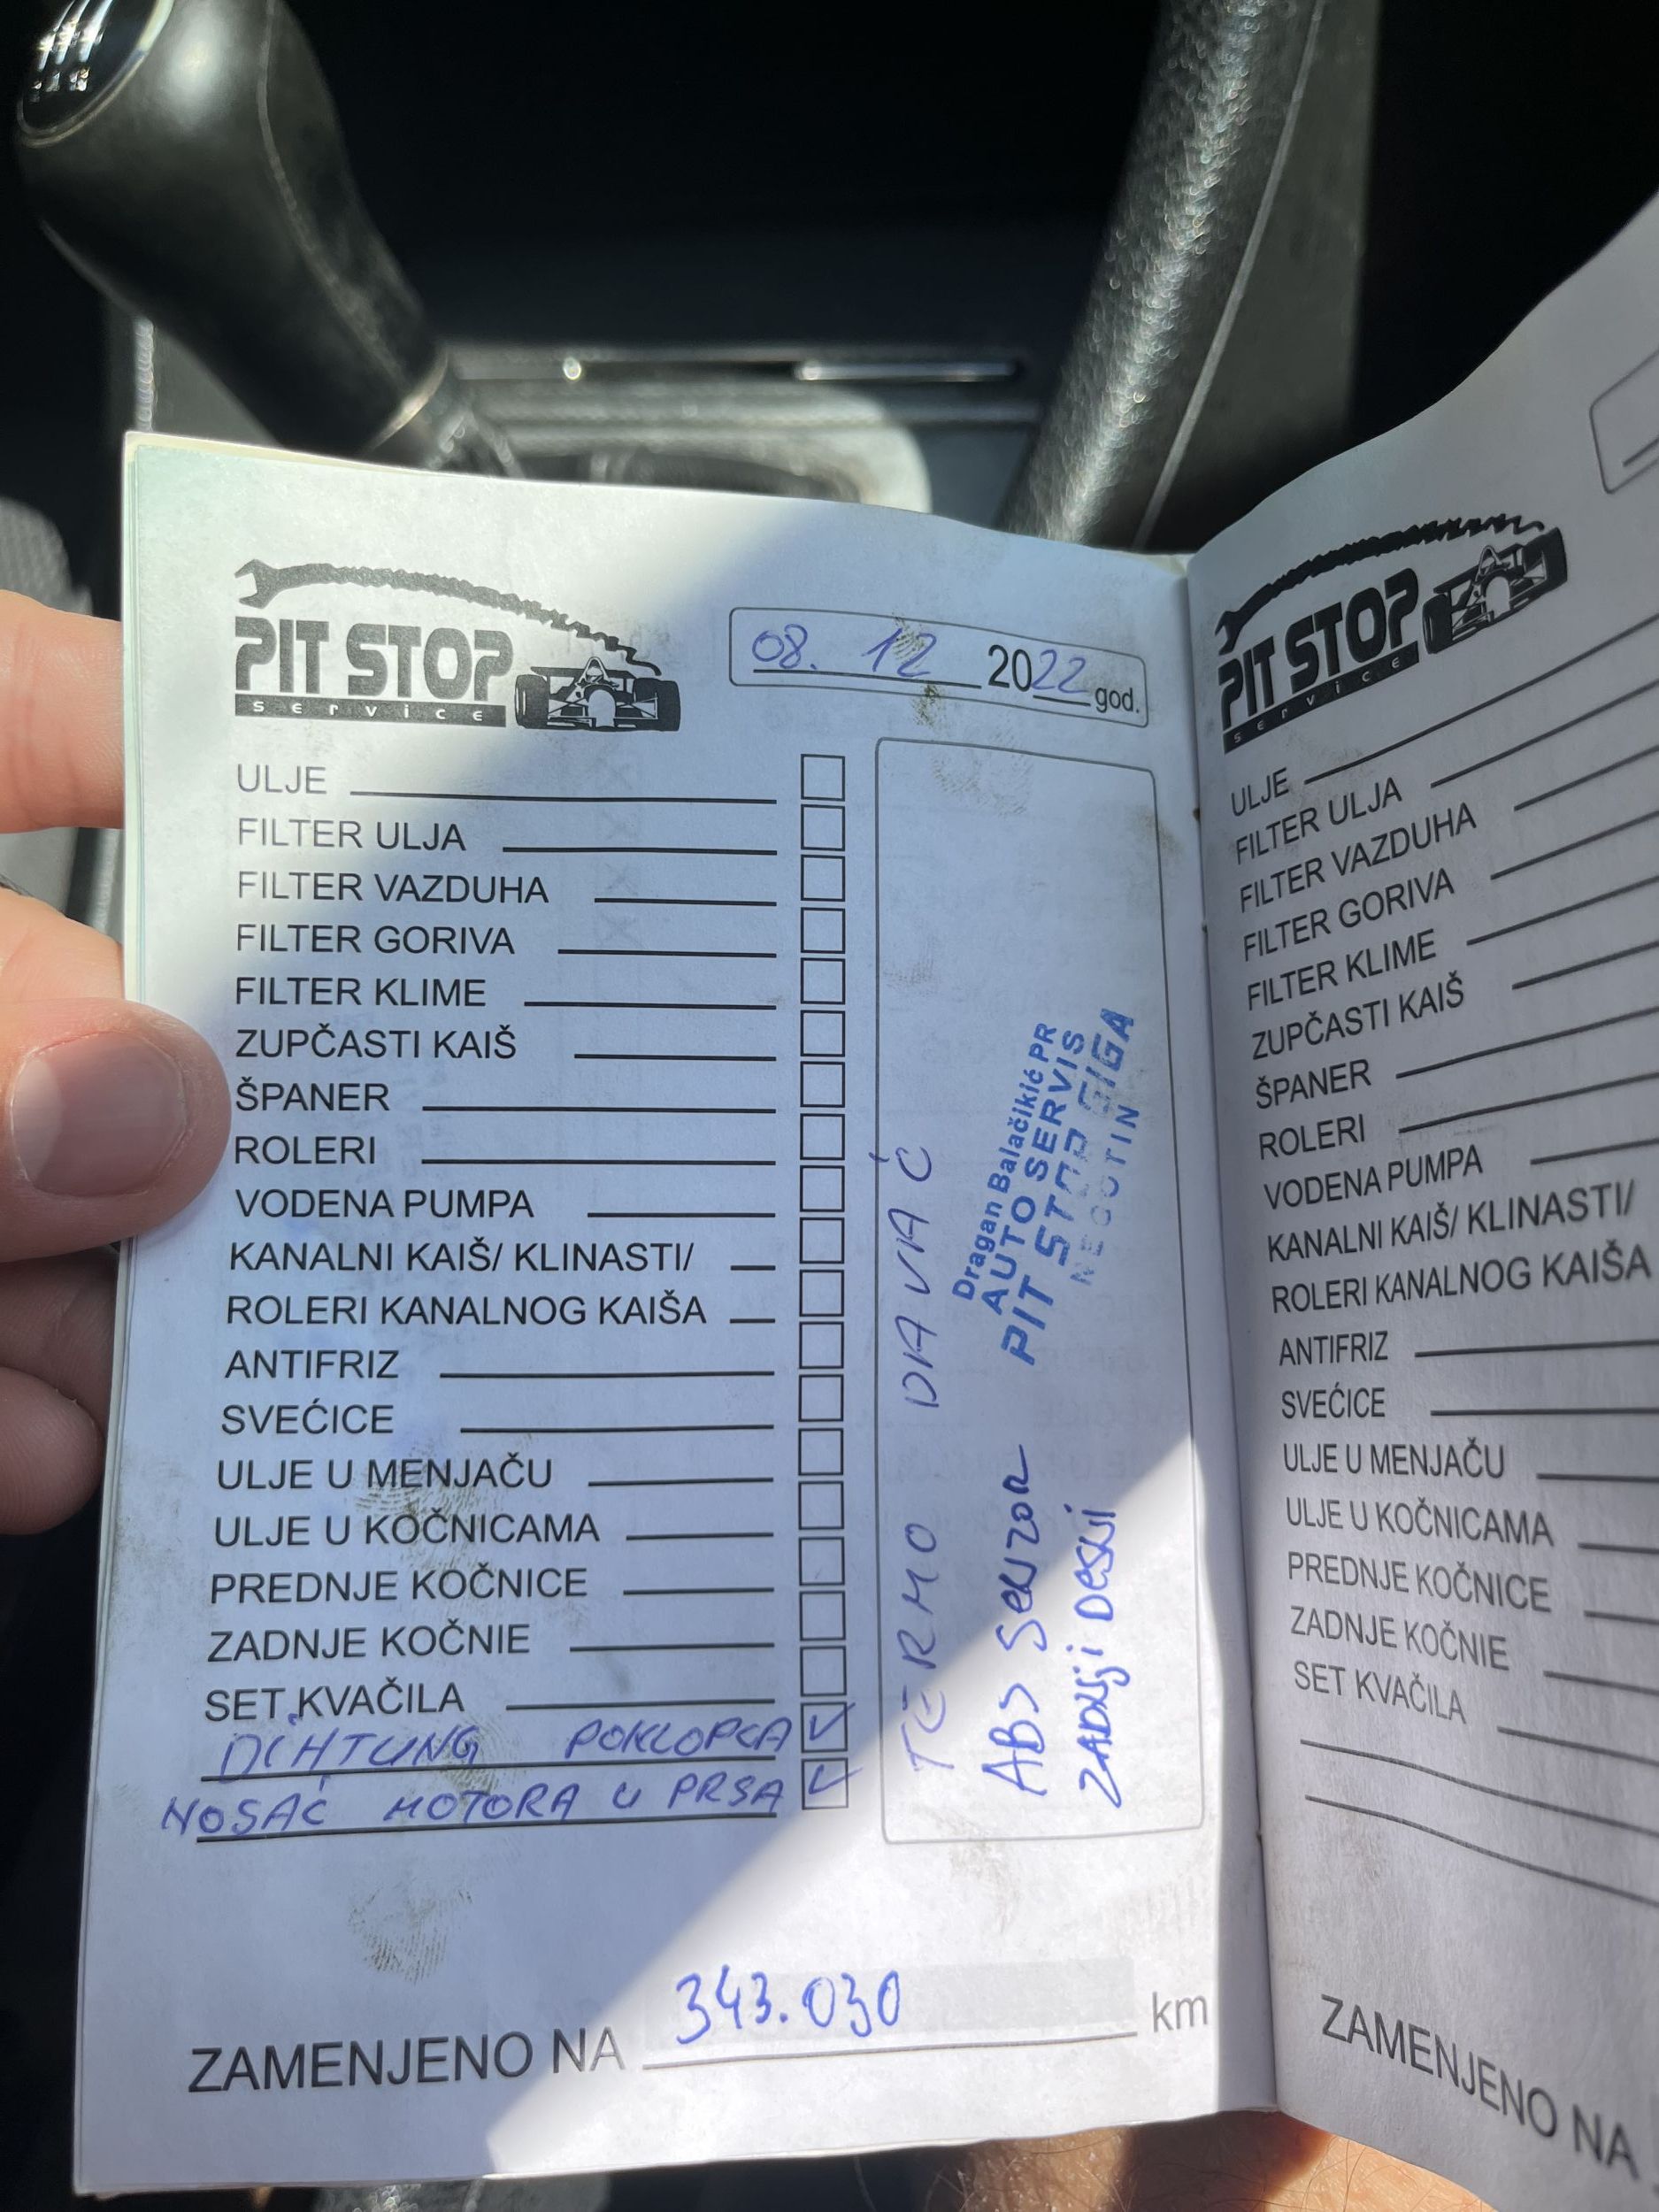 PIT STOP
service
08. 12 2022 god.
ULJE
FILTER ULJA
FILTER VAZDUHA
FILTER GORIVA
FILTER KLIME
ZUPČASTI KAIŠ
ŠPANER
ROLERI
VODENA PUMPA
KANALNI KAIŠ/ KLINASTI/
ROLERI KANALNOG KAIŠA
ANTIFRIZ
SVEĆICE
ULJE U MENJAČU
ULJE U KOČNICAMA
PREDNJE KOČNICE
ZADNJE KOČNIE
SET KVAČILA
DIHTUNG POKLOPCA
NOSAČ MOTORA U PRSA
TERMO DAVAČ
ABS Senzor
zadnji Desni
Dragan Balačikić PR
AUTO SERVIS
PIT STOP GIGA
NEGOTIN
ZAMENJENO NA 343.030 km
PIT STOP
service
ULJE
FILTER ULJA
FILTER VAZDUHA
FILTER GORIVA
FILTER KLIME
ZUPČASTI KAIŠ
ŠPANER
ROLERI
VODENA PUMPA
KANALNI KAIŠ/ KLINASTI/
ROLERI KANALNOG KAIŠA
ANTIFRIZ
SVEĆICE
ULJE U MENJAČU
ULJE U KOČNICAMA
PREDNJE KOČNICE
ZADNJE KOČNIE
SET KVAČILA
ZAMENJENO NA